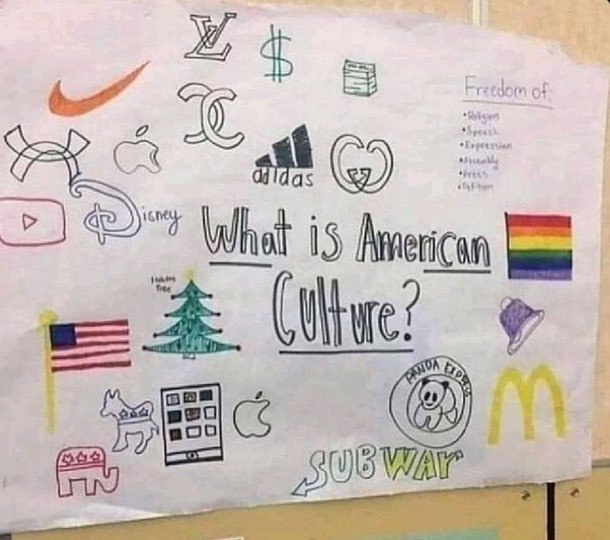 $
Freedom of:
• Religion
• Speech
• Expression
• Assembly
• Press
• Petition
adidas
Disney
What is American
Culture?
Holiday
Tree
PANDA EXPRESS
SUBWAY